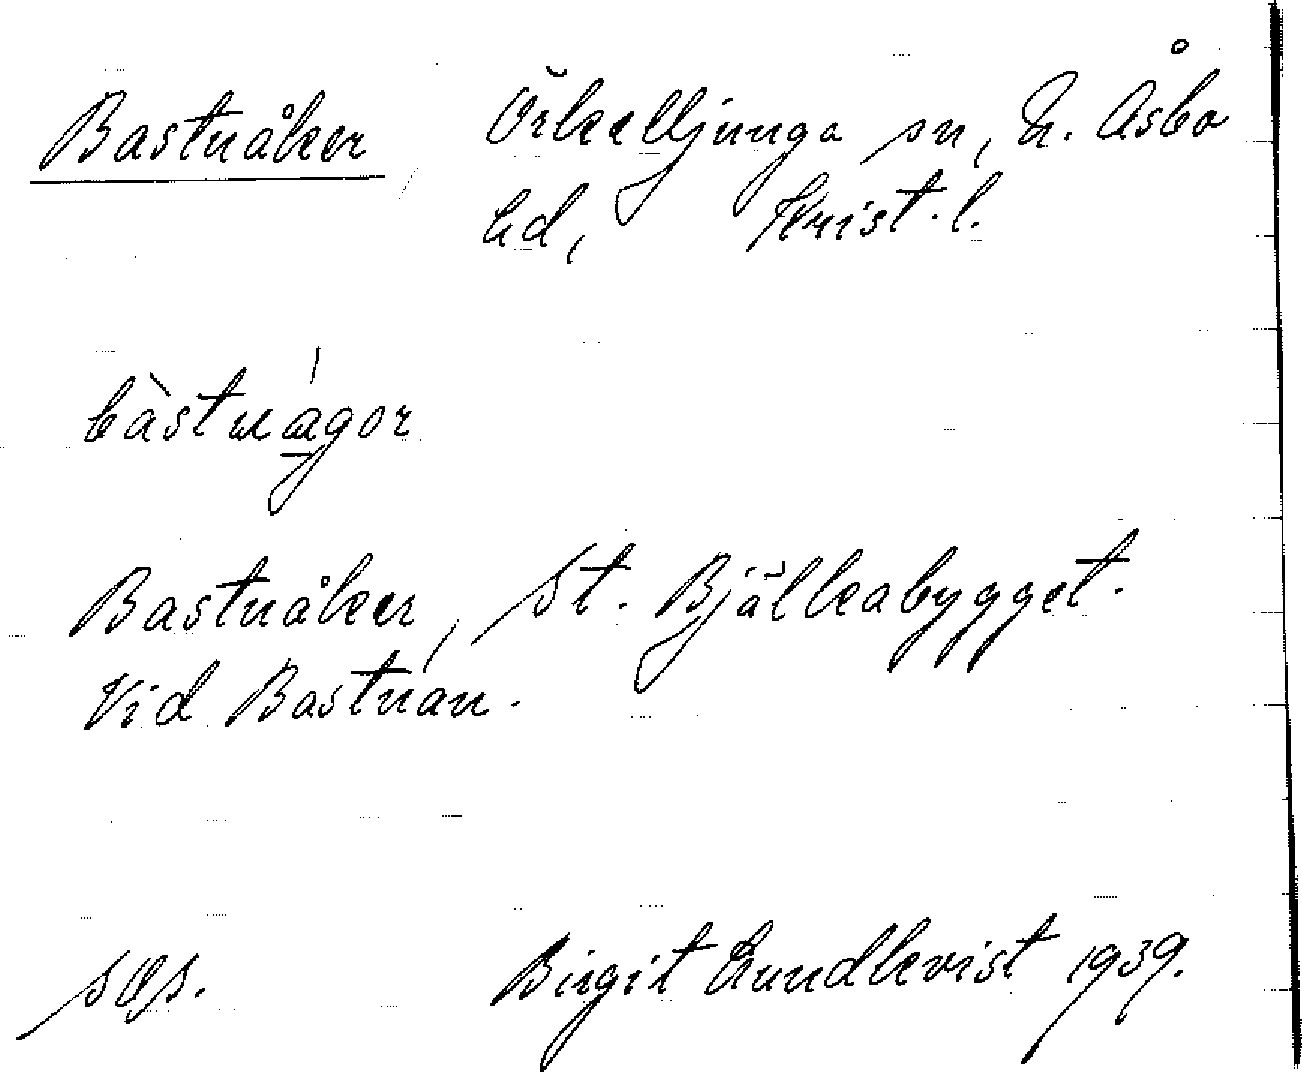 Bastnåker Örkelljunga sn, N. Åsbo
hd, Krist. l.
bàstnágor
Bastnåker, St. Bjälkabygget.
Vid Bastnån.
Birgit Lundkvist 1939.